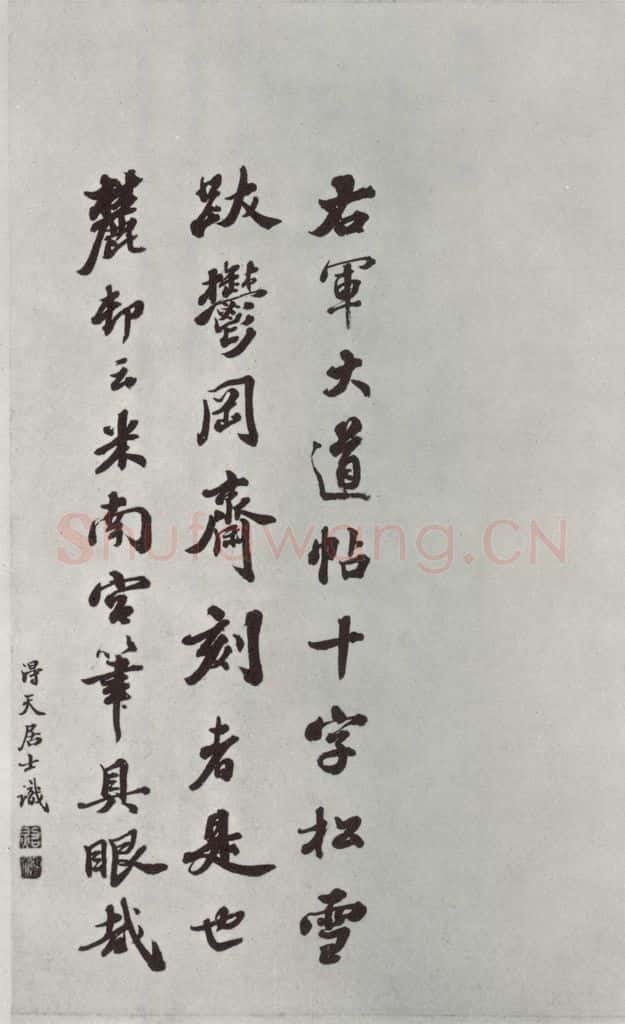 右軍大道帖十字松雪
跋鬱岡齋刻者是也
麓邨云米南宮筆具眼哉
得天居士識
Shufawang.CN